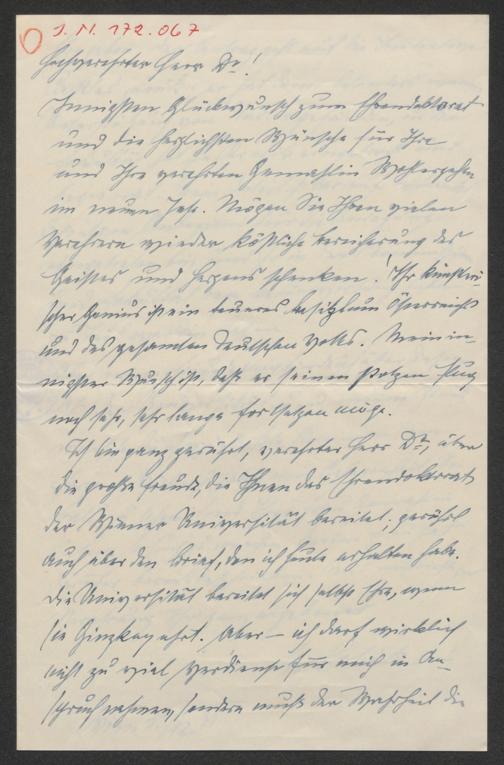 J. N. 172.067
Hochverehrter Herr Dr!
Innigsten Glückwunsch zum Ehrendoktorat
und die herzlichsten Wünsche für Ihr
und Ihrer verehrten Gemahlin Wohlergehen
im neuen Jahr. Mögen Sie Ihren vielen
Verehrern wieder köstliche Bereicherung des
Geistes und Herzens schenken! Ihr künstleri-
scher Genius ist ein teueres Besitztum Österreichs
und des gesamten deutschen Volks. Mein in-
nigster Wunsch ist, daß er seinen stolzen Flug
noch sehr, sehr lange fortsetzen möge.
Ich bin ganz gerührt, verehrter Herr Dr, über
die große Freude, die Ihnen das Ehrendoktorat
der Wiener Universität bereitet; gerührt
auch über den Brief, den ich heute erhalten habe.
Die Universität bereitet sich selbst Ehre, wenn
sie Ginzkey ehrt. Aber – ich darf wirklich
nicht zu viel Verdienst für mich in An-
spruch nehmen, sondern muß der Wahrheit die